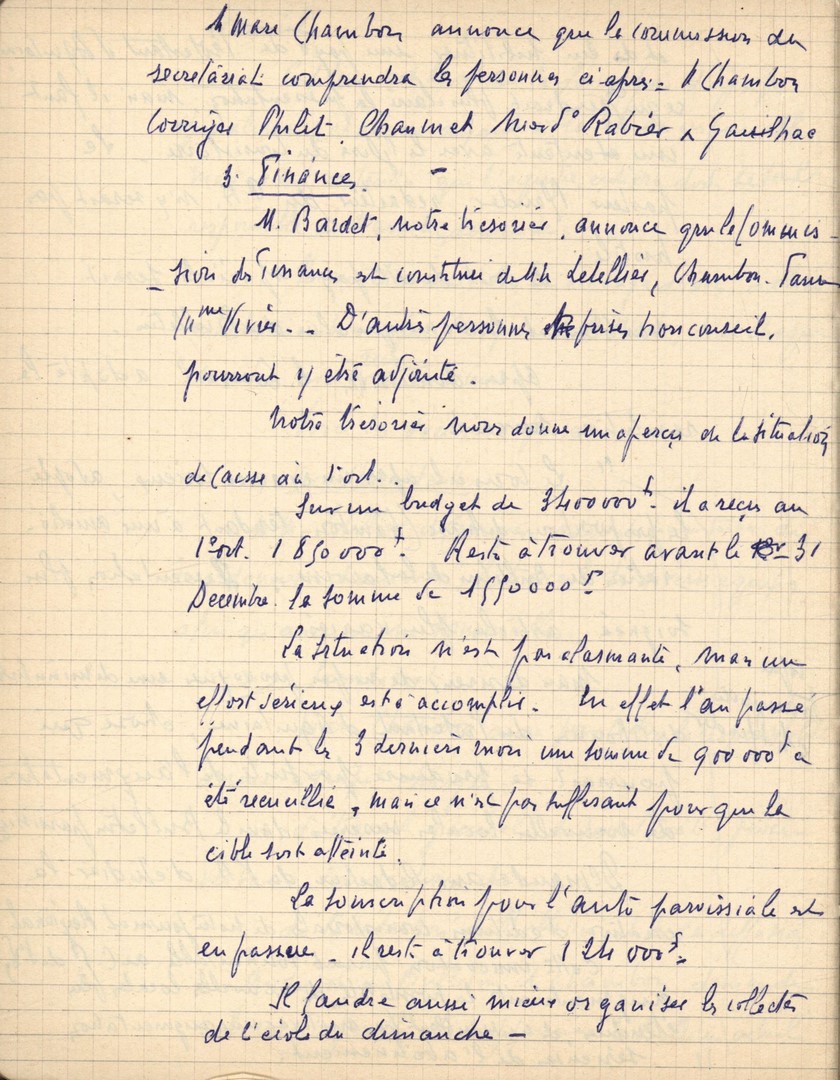 M Marc Chambon annonce que la commission du
secrétariat comprendra les personnes ci-après = M Chambon
Philit Chaumet Rabier
3. Finances.
M. Bardet, notre trésorier, annonce que la Commis-
sion des Finances est constituée de MM Letellier, Chambon.
Mme Vivier. - D'autres personnes prises hors conseil,
pourront y être adjointes.
Notre trésorier nous donne un aperçu de la situation
de caisse au 1er oct..
Sur un budget de 3400000f. il a reçu au
1er oct. 1 850 000f. Reste à trouver avant le 31
Décembre la somme de 1550000f
La situation n'est pas alarmante, mais un
effort sérieux est à accomplir. En effet l'an passé
pendant les 3 derniers mois une somme de 900 000f a
été recueillie, mais ce n'est pas suffisant pour que la
cible soit atteinte.
La souscription pour l'auto paroissiale est
en panne - il reste à trouver 124 000f.
Il faudra aussi mieux organiser les collectes
de l'école du dimanche -